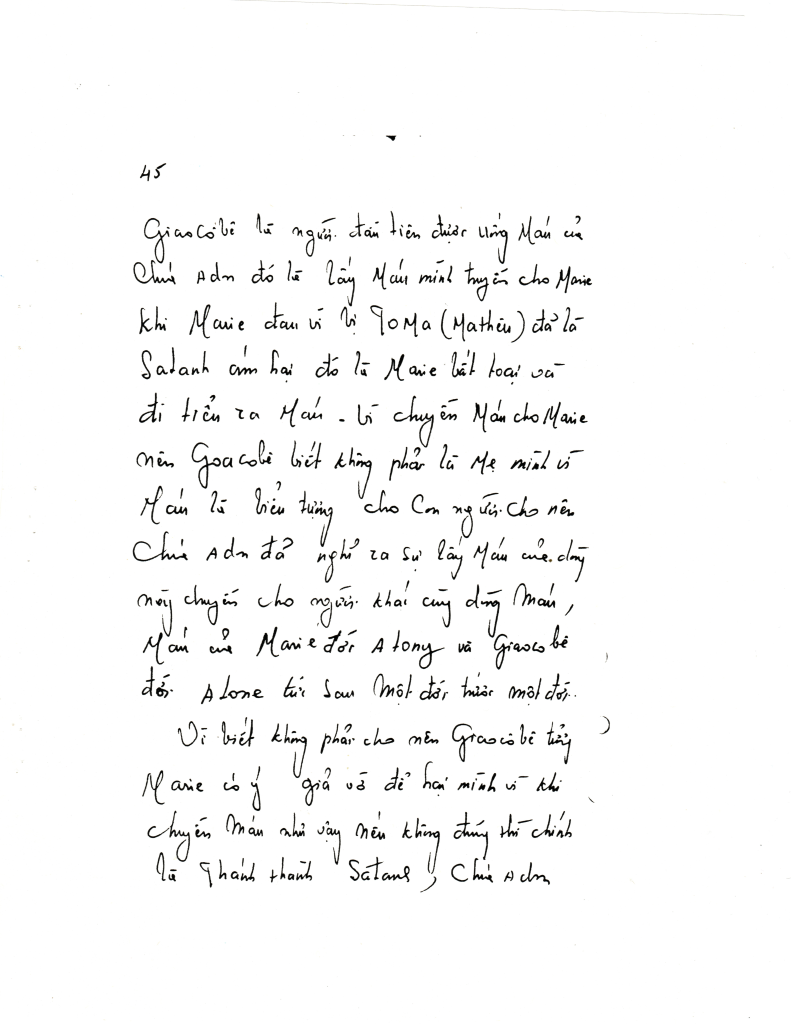 45
Giacôbê là người đầu tiên được uống Máu của
Chúa Adn đó là lấy Máu mình truyền cho Marie
khi Marie đau vì bị TOMA (Mathêu) đả là
Satanh ám hại đó là Marie bất toại và
đi tiểu ra Máu - Vì chuyển Máu cho Marie
nên Goacobê biết không phải là Mẹ mình vì
Máu là biểu tượng cho Con người cho nên
Chúa Adn đả nghỉ ra sự lấy Máu của dòng
nầy chuyển cho người khác cùng dòng Máu,
Máu của Marie đời Atony và Giacobê
đời Atone tức sau một đời trước một đời.
Vì biết không phải cho nên Giacôbê tưởng
Marie có ý giả vờ để hại mình vì khi
chuyển máu như vậy nếu không đúng thì chính
là Thánh thành Satane, Chúa Adn